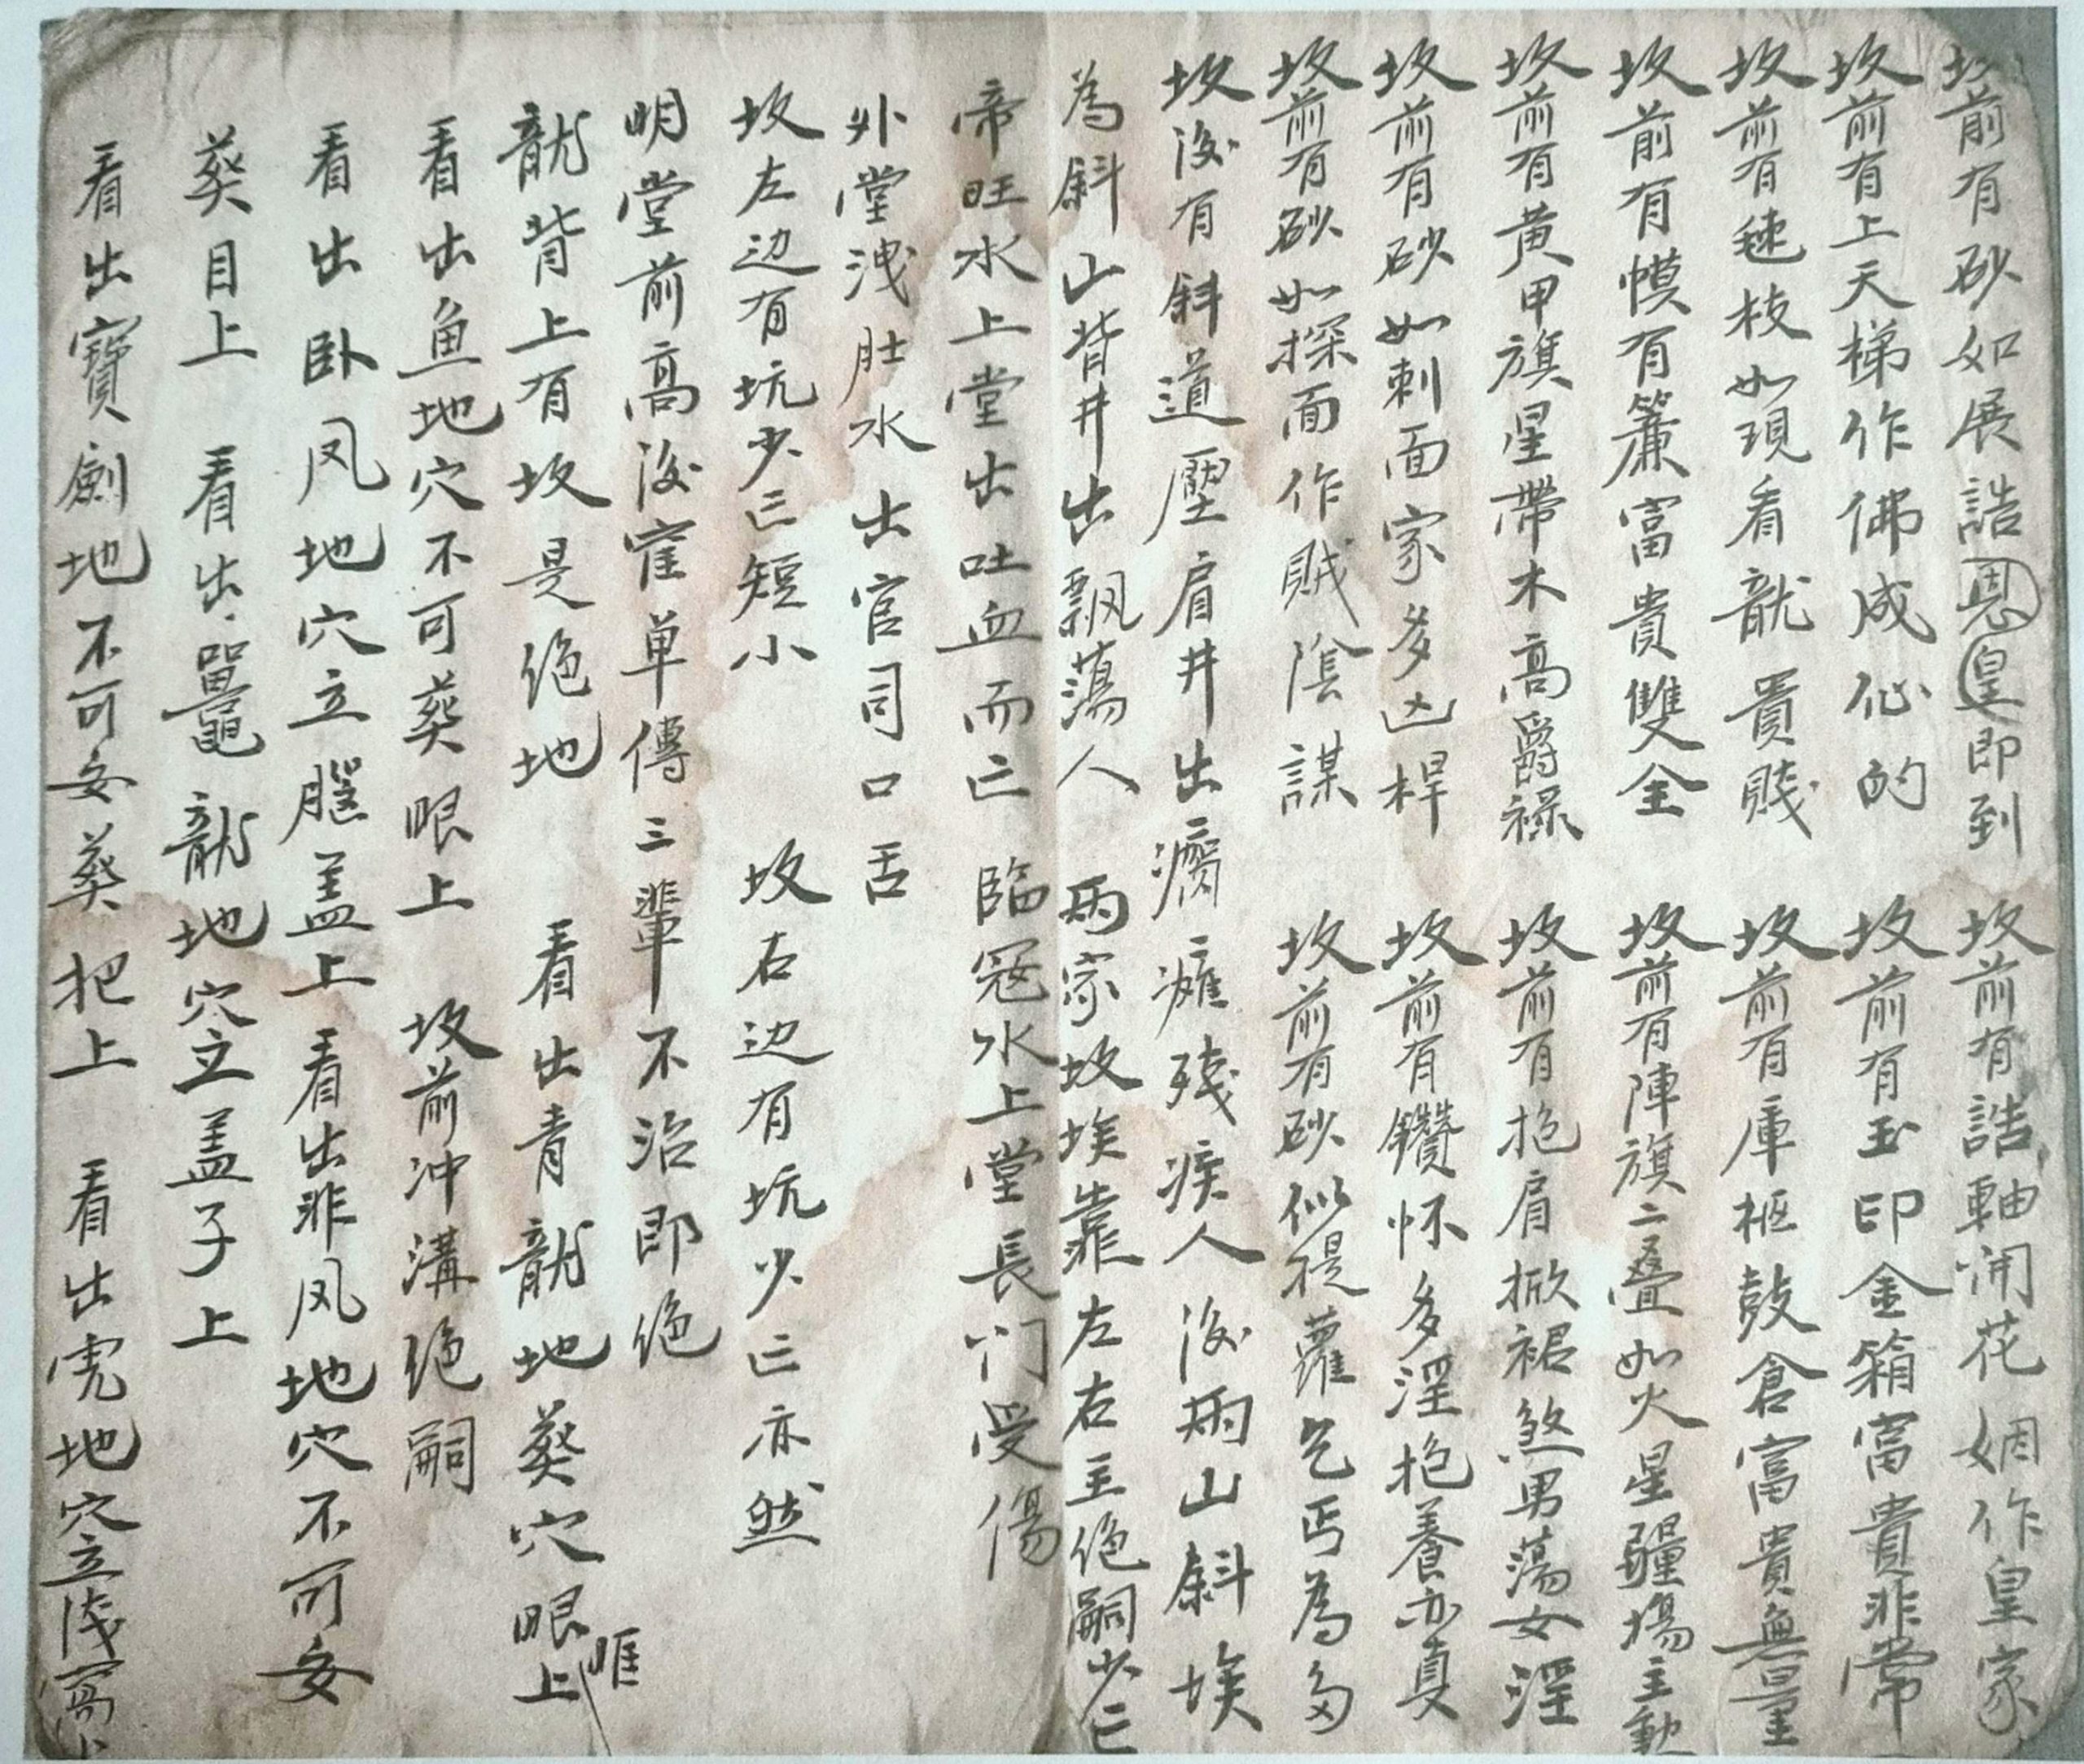 坟前有砂如展誥恩皇即到 坟前有誥軸開花姻作皇家
坟前有上天梯作佛成仙的 坟前有玉印金箱富貴非常
坟前有毬枝如現看龍貴賤 坟前有庫柜鼓倉富貴無量
坟前有幙有簾富貴雙全 坟前有陣旗二叠如火星疆場主勲
坟前有黄甲旗星帶木高爵禄 坟前有抱肩掀裙煞男蕩女淫
坟前有砂如刺面家多凶桿 坟前有鑽怀多淫抱養亦真
坟前有砂如探面作贼陰謀 坟前有砂似提蘿乞丐為多
坟後有斜道壓肩井出癘癱残疾人後兩山斜埃
為斜山背井出飄蕩人 兩家坟埃靠左右主绝嗣少亡
帝旺水上堂出吐血而亡 臨冠水上堂長门受傷
外堂洩肚水 出官司口舌
坟左边有坑少亡短小 坟右边有坑少亡亦然
明堂前高後窄单傳三輩不治即绝
龍背上有坟是绝地 看出青龍地葬穴眼上
眶
看出鱼地穴不可葬眼上 坟前冲溝绝嗣
看出卧凤地穴立腥盖上 看出非凤地穴不可妄
葬目上 看出鼉龍地穴立盖子上
看出寶劍地不可妄葬把上 看出虎地穴立浅窩